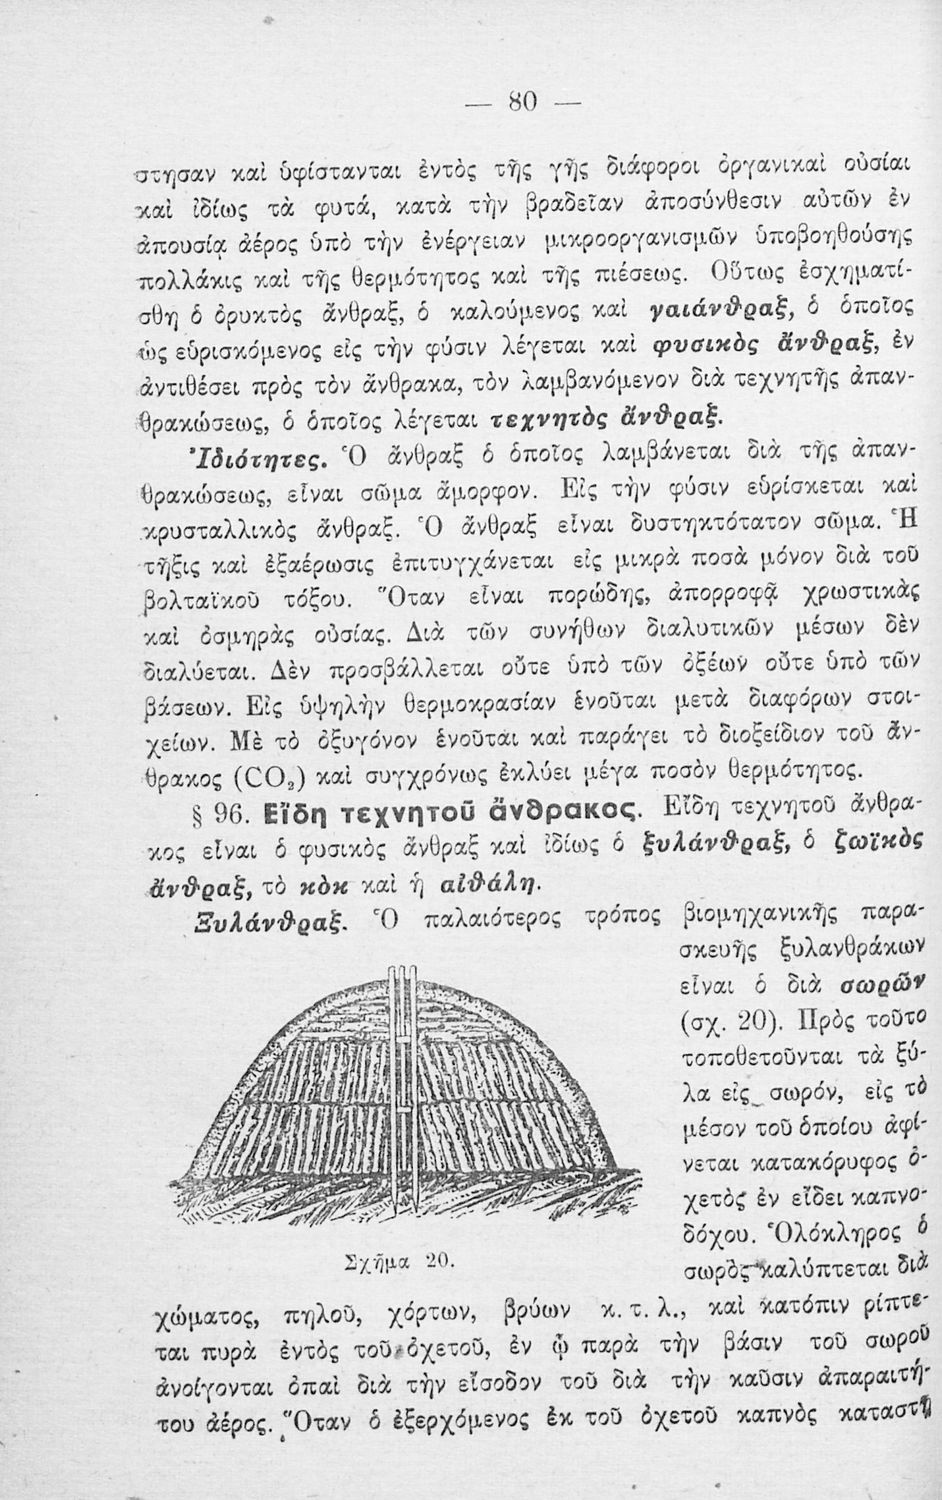 — 80 —
στησαν καὶ ὑφίστανται ἐντὸς τῆς γῆς διάφοροι ὀργανικαὶ οὐσίαι
καὶ ἰδίως τὰ φυτά, κατὰ τὴν βραδεῖαν ἀποσύνθεσιν αὐτῶν ἐν
ἀπουσίᾳ ἀέρος ὑπὸ τὴν ἐνέργειαν μικροοργανισμῶν ὑποβοηθούσης
πολλάκις καὶ τῆς θερμότητος καὶ τῆς πιέσεως. Οὕτως ἐσχηματί-
σθη ὁ ὀρυκτὸς ἄνθραξ, ὁ καλούμενος καὶ γαιάνθραξ, ὁ ὁποῖος
ὡς εὑρισκόμενος εἰς τὴν φύσιν λέγεται καὶ φυσικὸς ἄνθραξ, ἐν
ἀντιθέσει πρὸς τὸν ἄνθρακα, τὸν λαμβανόμενον διὰ τεχνητῆς ἀπαν-
θρακώσεως, ὁ ὁποῖος λέγεται τεχνητὸς ἄνθραξ.
Ἰδιότητες. Ὁ ἄνθραξ ὁ ὁποῖος λαμβάνεται διὰ τῆς ἀπαν-
θρακώσεως, εἶναι σῶμα ἄμορφον. Εἰς τὴν φύσιν εὑρίσκεται καὶ
κρυσταλλικὸς ἄνθραξ. Ὁ ἄνθραξ εἶναι δυστηκτότατον σῶμα. Ἡ
τῆξις καὶ ἐξαέρωσις ἐπιτυγχάνεται εἰς μικρὰ ποσὰ μόνον διὰ τοῦ
βολταϊκοῦ τόξου. Ὅταν εἶναι πορώδης, ἀπορροφᾷ χρωστικὰς
καὶ ὀσμηρὰς οὐσίας. Διὰ τῶν συνήθων διαλυτικῶν μέσων δὲν
διαλύεται. Δὲν προσβάλλεται οὔτε ὑπὸ τῶν ὀξέων οὔτε ὑπὸ τῶν
βάσεων. Εἰς ὑψηλὴν θερμοκρασίαν ἑνοῦται μετὰ διαφόρων στοι-
χείων. Μὲ τὸ ὀξυγόνον ἑνοῦται καὶ παράγει τὸ διοξείδιον τοῦ ἄν-
θρακος (CO₂) καὶ συγχρόνως ἐκλύει μέγα ποσὸν θερμότητος.
§ 96. Εἴδη τεχνητοῦ ἄνθρακος. Εἴδη τεχνητοῦ ἄνθρα-
κος εἶναι ὁ φυσικὸς ἄνθραξ καὶ ἰδίως ὁ ξυλάνθραξ, ὁ ζωϊκὸς
ἄνθραξ, τὸ κὸκ καὶ ἡ αἰθάλη.
Ξυλάνθραξ. Ὁ παλαιότερος τρόπος βιομηχανικῆς παρα-
σκευῆς ξυλανθράκων
εἶναι ὁ διὰ σωρῶν
(σχ. 20). Πρὸς τοῦτο
τοποθετοῦνται τὰ ξύ-
λα εἰς σωρόν, εἰς τὸ
μέσον τοῦ ὁποίου ἀφί-
νεται κατακόρυφος ὀ-
χετὸς ἐν εἴδει καπνο-
δόχου. Ὁλόκληρος ὁ
σωρὸς καλύπτεται διὰ
Σχῆμα 20.
χώματος, πηλοῦ, χόρτων, βρύων κ. τ. λ., καὶ κατόπιν ρίπτε-
ται πυρὰ ἐντὸς τοῦ ὀχετοῦ, ἐν ᾧ παρὰ τὴν βάσιν τοῦ σωροῦ
ἀνοίγονται ὀπαὶ διὰ τὴν εἴσοδον τοῦ διὰ τὴν καῦσιν ἀπαραιτή-
του ἀέρος. Ὅταν ὁ ἐξερχόμενος ἐκ τοῦ ὀχετοῦ καπνὸς καταστῇ